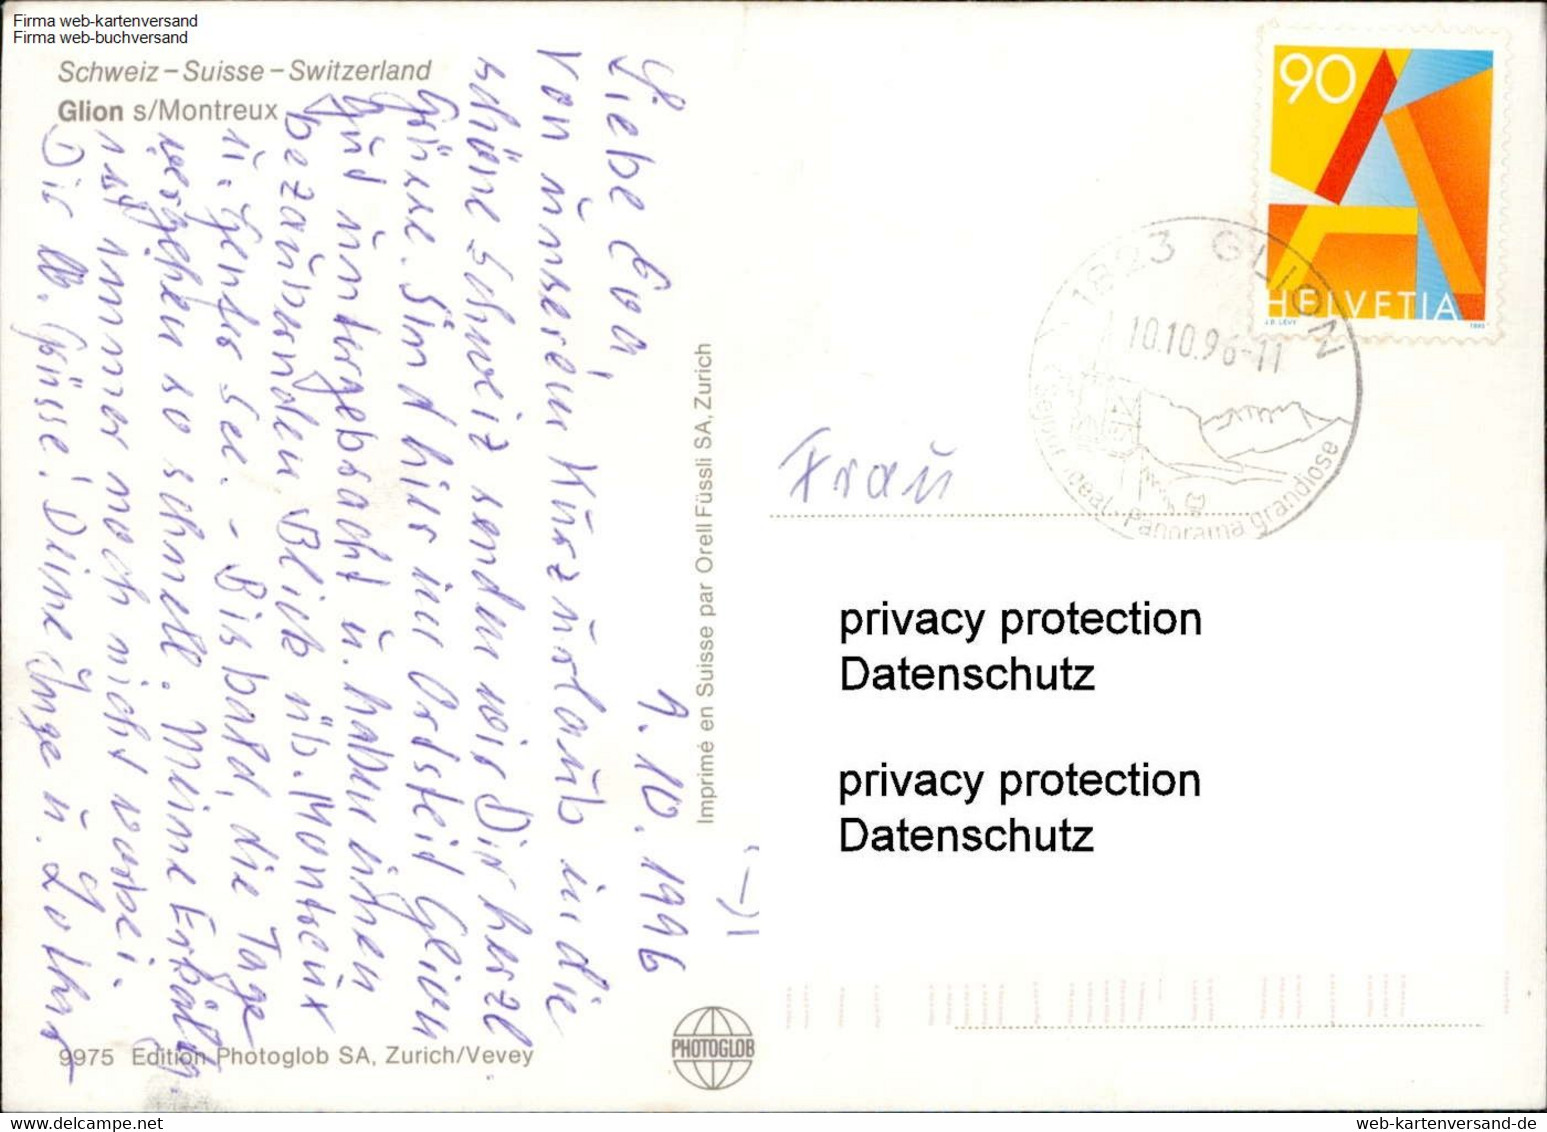 Firma web-kartenversand
Firma web-buchversand
Schweiz – Suisse – Switzerland
Glion s/Montreux
1.10.1996
Liebe Eva,
Von unserem Kurzurlaub in die
schöne Schweiz senden wir Dir herzl.
Grüsse. Sind hier im Ortsteil Glion
gut untergebracht u. haben einen
bezaubernden Blick üb. Montreux
u. Genfer See. - Bis bald, die Tage
vergehen so schnell. Meine Erkältg.
ist immer noch nicht vorbei.
Dir lb. Grüsse! Deine Inge u. Lothar
9975 Edition Photoglob SA, Zurich/Vevey
Imprimé en Suisse par Orell Füssli SA, Zurich
PHOTOGLOB
90
HELVETIA
J.D. LEVY 1995
1823 GLION
10.10.96-11
Séjour idéal. Panorama grandiose
Frau
privacy protection
Datenschutz
privacy protection
Datenschutz
www.web-kartenversand.de
web-kartenversand-de